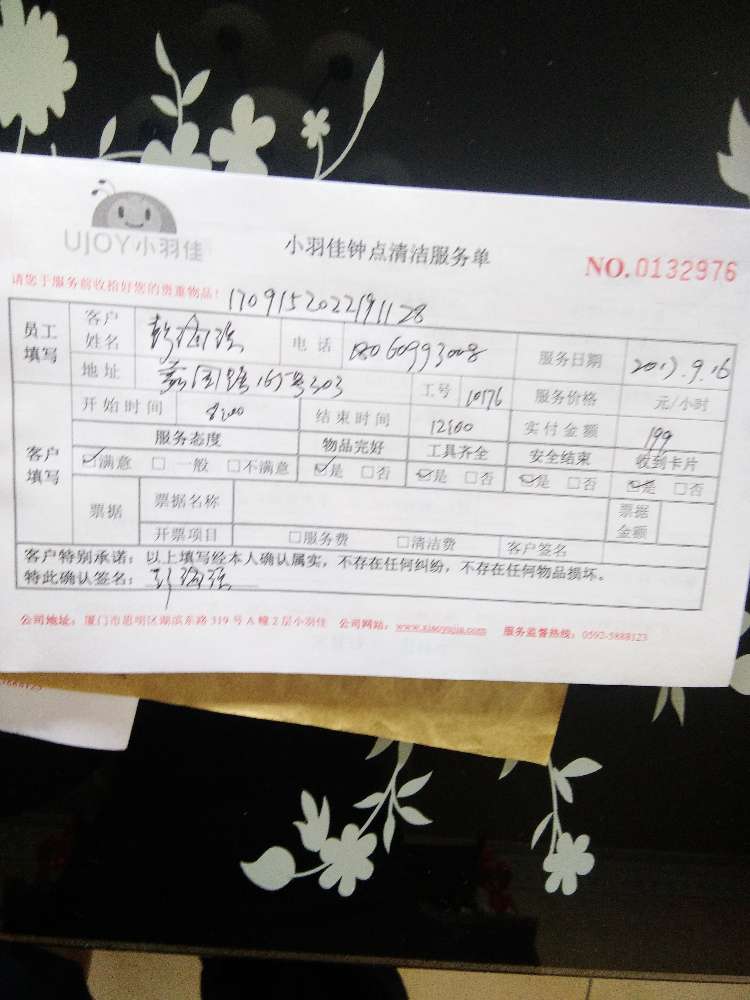 UJOY小羽佳
小羽佳钟点清洁服务单
NO.0132976
请您于服务前收拾好您的贵重物品！
1709152022191128
员工填写 客户姓名 电话 18060993008 服务日期 2017.9.16
地址 165号303 工号 10176 服务价格 元/小时
客户填写 开始时间 8:00 结束时间 12:00 实付金额 199
服务态度 物品完好 工具齐全 安全结束 收到卡片
☑满意 □一般 □不满意 ☑是 □否 ☑是 □否 ☑是 □否 ☑是 □否
票据 票据名称 票据金额
开票项目 □服务费 □清洁费 客户签名
客户特别承诺：以上填写经本人确认属实，不存在任何纠纷，不存在任何物品损坏。
特此确认签名：
公司地址：厦门市思明区湖滨东路319号A幢2层小羽佳 公司网站：www.xiaoyujia.com 服务监督热线：0592-5888123